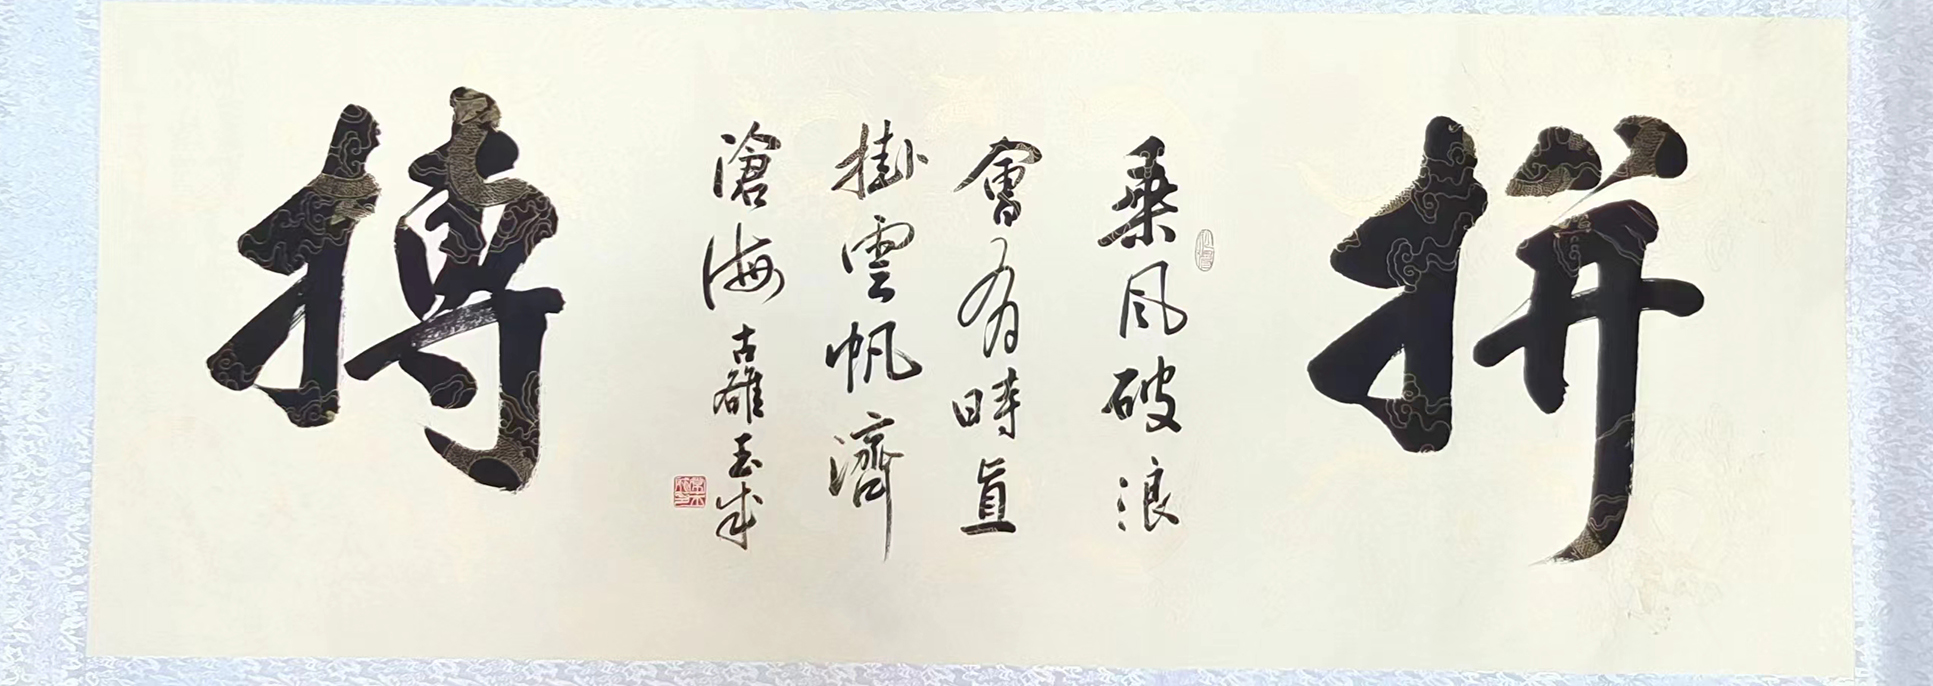 拼
乘风破浪
會有時直
掛雲帆濟
滄海 古
搏